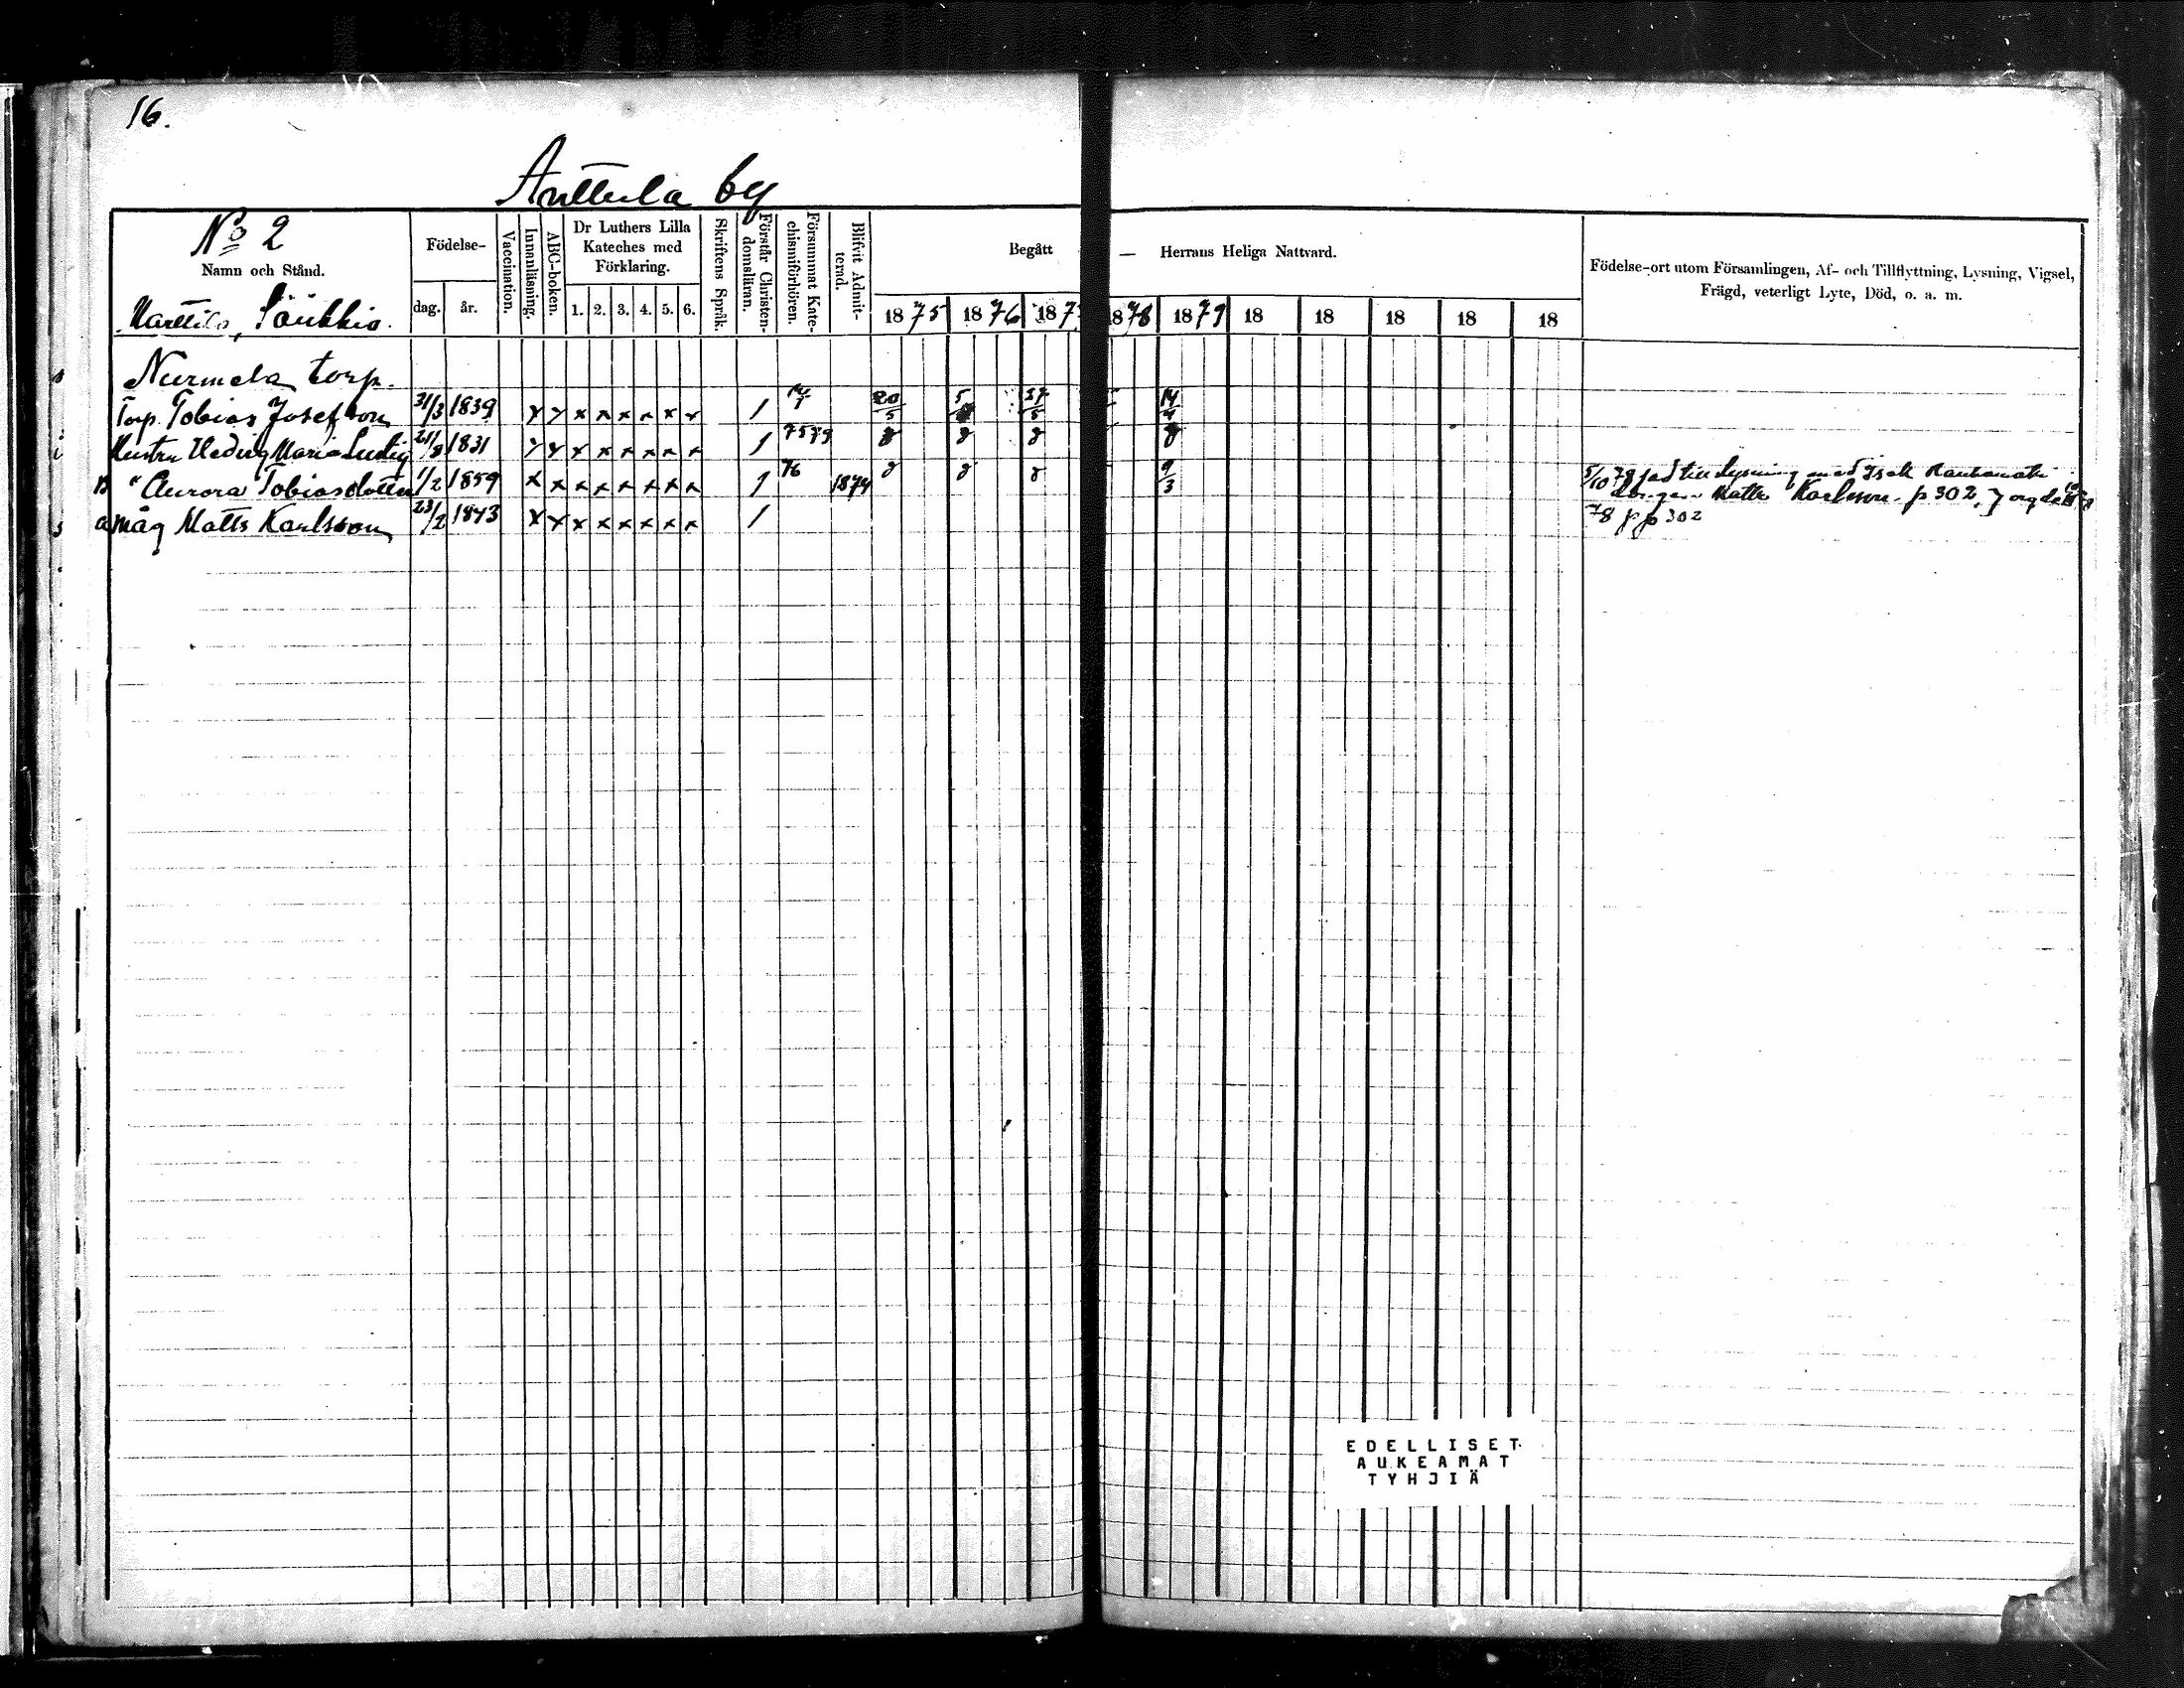 16.
Anttila by
No 2
Namn och Stånd.
Marttila, Säukkiö.
Födelse-
dag. år.
Vaccination.
Innanläsning.
ABC-boken.
Dr Luthers Lilla
Kateches med
Förklaring.
1. 2. 3. 4. 5. 6.
Skriftens Språk.
Förstår Christen-
domsläran.
Försummat Kate-
chismiförhören.
Blifvit Admit-
terad.
Begått — Herrans Heliga Nattvard.
1875 1876 187 1878 1879 18 18 18 18 18
Födelse-ort utom Församlingen, Af- och Tillflyttning, Lysning, Vigsel,
Frägd, veterligt Lyte, Död, o. a. m.
Nurmela torp.
Torp. Tobias Josefsson 31/3 1839 x x x x x x x x / 20/5 5 27/5 14/4
Hustru Hedvig Maria 21/8 1831 x x x x x x x x / 75 79
" Aurora Tobiasdotter 1/2 1859 x x x x x x x x / 76 1874 9/3 5/10 78 till lysning med Isak
Matts Karlsson p 302
måg Matts Karlsson 23/2 1843 x x x x x x x x / 78 p 302
EDELLISET
AUKEAMAT
TYHJIÄ